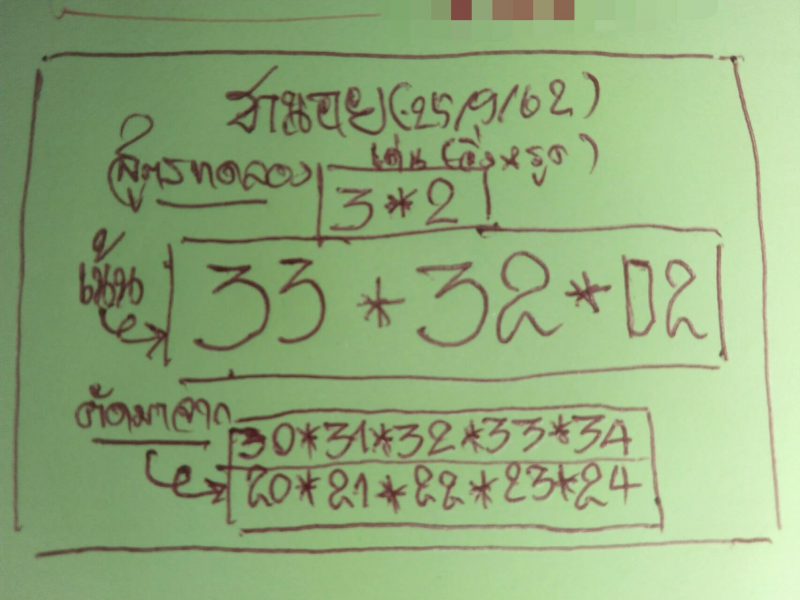 ฮานอย(25/9/62)
สูตรทดลอง เด่น(วิ่ง*รูด)
3*2
เน้น
33*32*02
คัดมาจาก
30*31*32*33*34
20*21*22*23*24